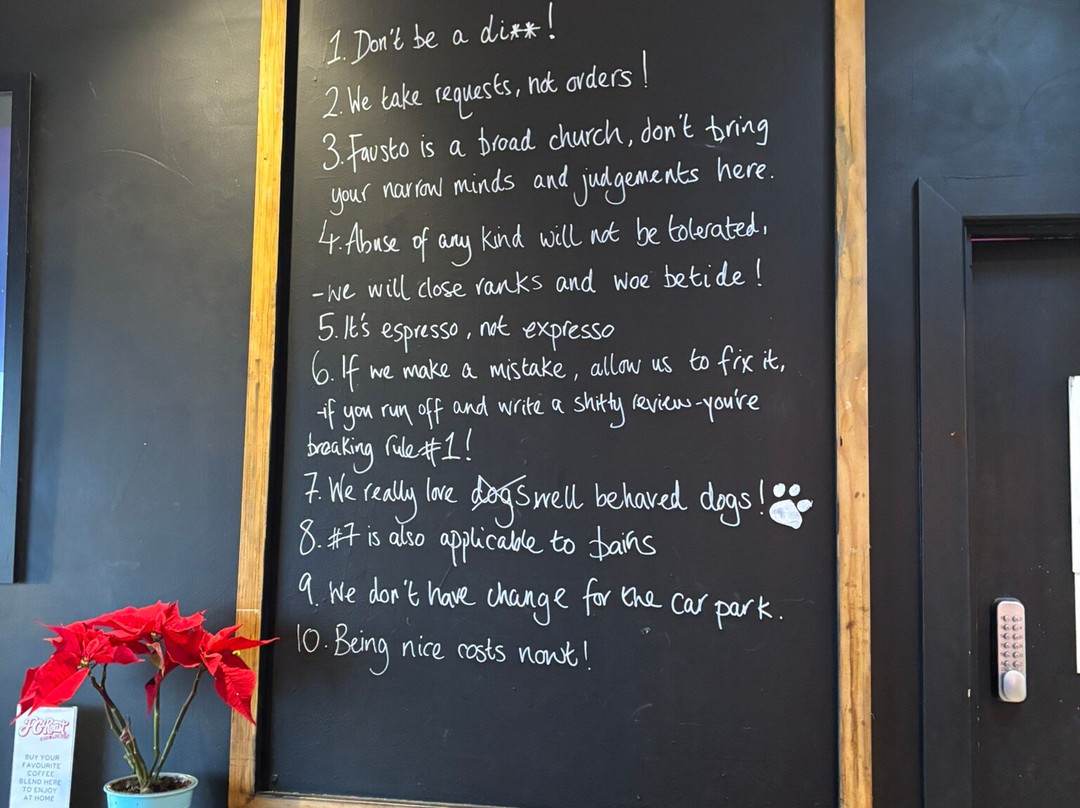 1. Don't be a di**!
2. We take requests, not orders!
3. Fausto is a broad church, don't bring
your narrow minds and judgements here.
4. Abuse of any kind will not be tolerated,
-we will close ranks and woe betide!
5. It's espresso, not expresso
6. If we make a mistake, allow us to fix it,
-if you run off and write a shitty review-you're
breaking rule #1!
7. We really love dogs well behaved dogs!
8. #7 is also applicable to bairns
9. We don't have change for the car park.
10. Being nice costs nowt!
BUY YOUR
FAVOURITE
COFFEE
BLEND HERE
TO ENJOY
AT HOME